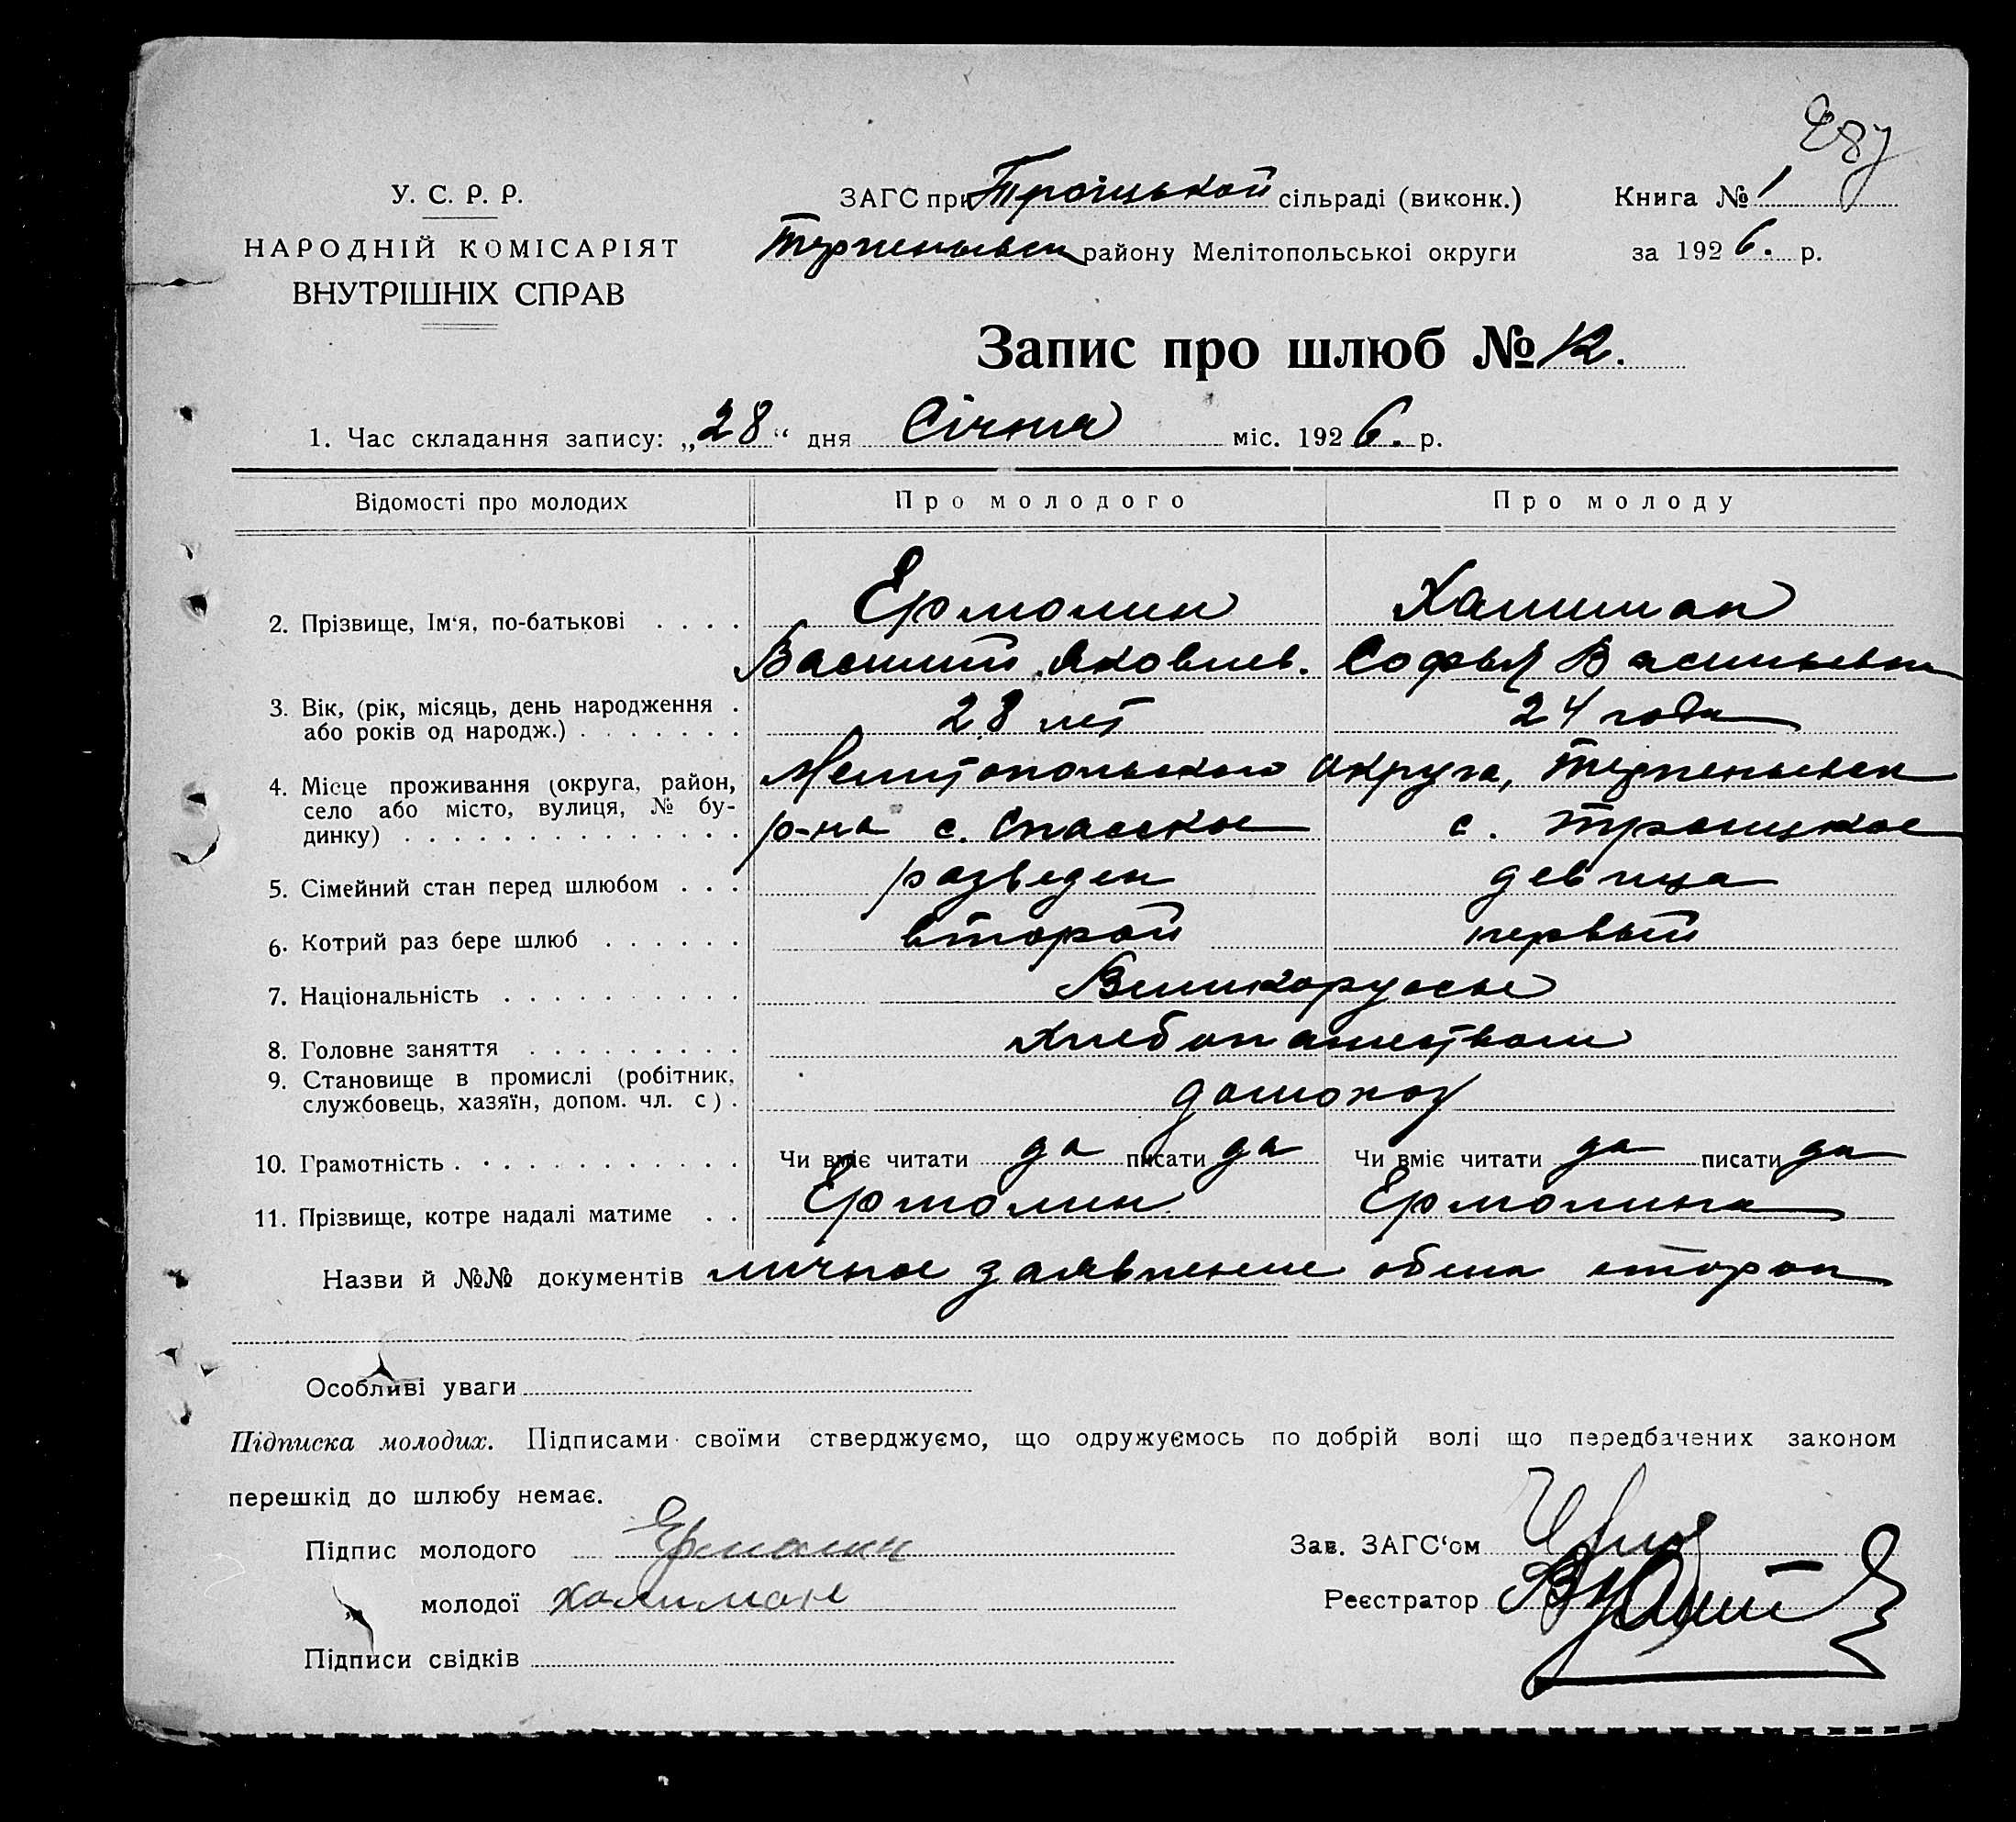 287
У. С. Р. Р.
НАРОДНІЙ КОМІСАРІЯТ
ВНУТРІШНІХ СПРАВ
ЗАГС при Троїцькой сільраді (виконк.)
Терпеньевск району Мелітопольської округи
Книга № 1
за 1926. р.
Запис про шлюб № 12.
1. Час складання запису: „28“ дня Січня міс. 1926. р.
Відомості про молодих Про молодого Про молоду
2. Прізвище, Ім‘я, по-батькові . . . . Ермолин Халиман
Василий Яковлев. Софья Васильевна
3. Вік, (рік, місяць, день народження .
або років од народж.) . . . . . . . 28 лет 24 года
4. Місце проживання (округа, район, Мелитопольского Округа, Терпеньевск
село або місто, вулиця, № бу-
динку) . . . . . . . . . . . . . . р-на с. Спасское с. Троицкое
5. Сімейний стан перед шлюбом . . . разведен девица
6. Котрий раз бере шлюб . . . . . . второй первый
7. Національність . . . . . . . . . . Великоруссы
8. Головне заняття . . . . . . . . . Хлебопашеством
9. Становище в промислі (робітник,
службовець, хазяїн, допом. чл. с) .
10. Грамотність . . . . . . . . . . . . Чи вміє читати да писати да Чи вміє читати да писати да
11. Прізвище, котре надалі матиме . . Ермолин Ермолина
Назви й №№ документів личное заявление обеих сторон
Особливі уваги
Підписка молодих. Підписами своїми стверджуємо, що одружуємось по добрій волі що передбачених законом
перешкід до шлюбу немає.
Підпис молодого Ермолин
молодої Халиман
Підписи свідків
Зав. ЗАГС‘ом
Реєстратор